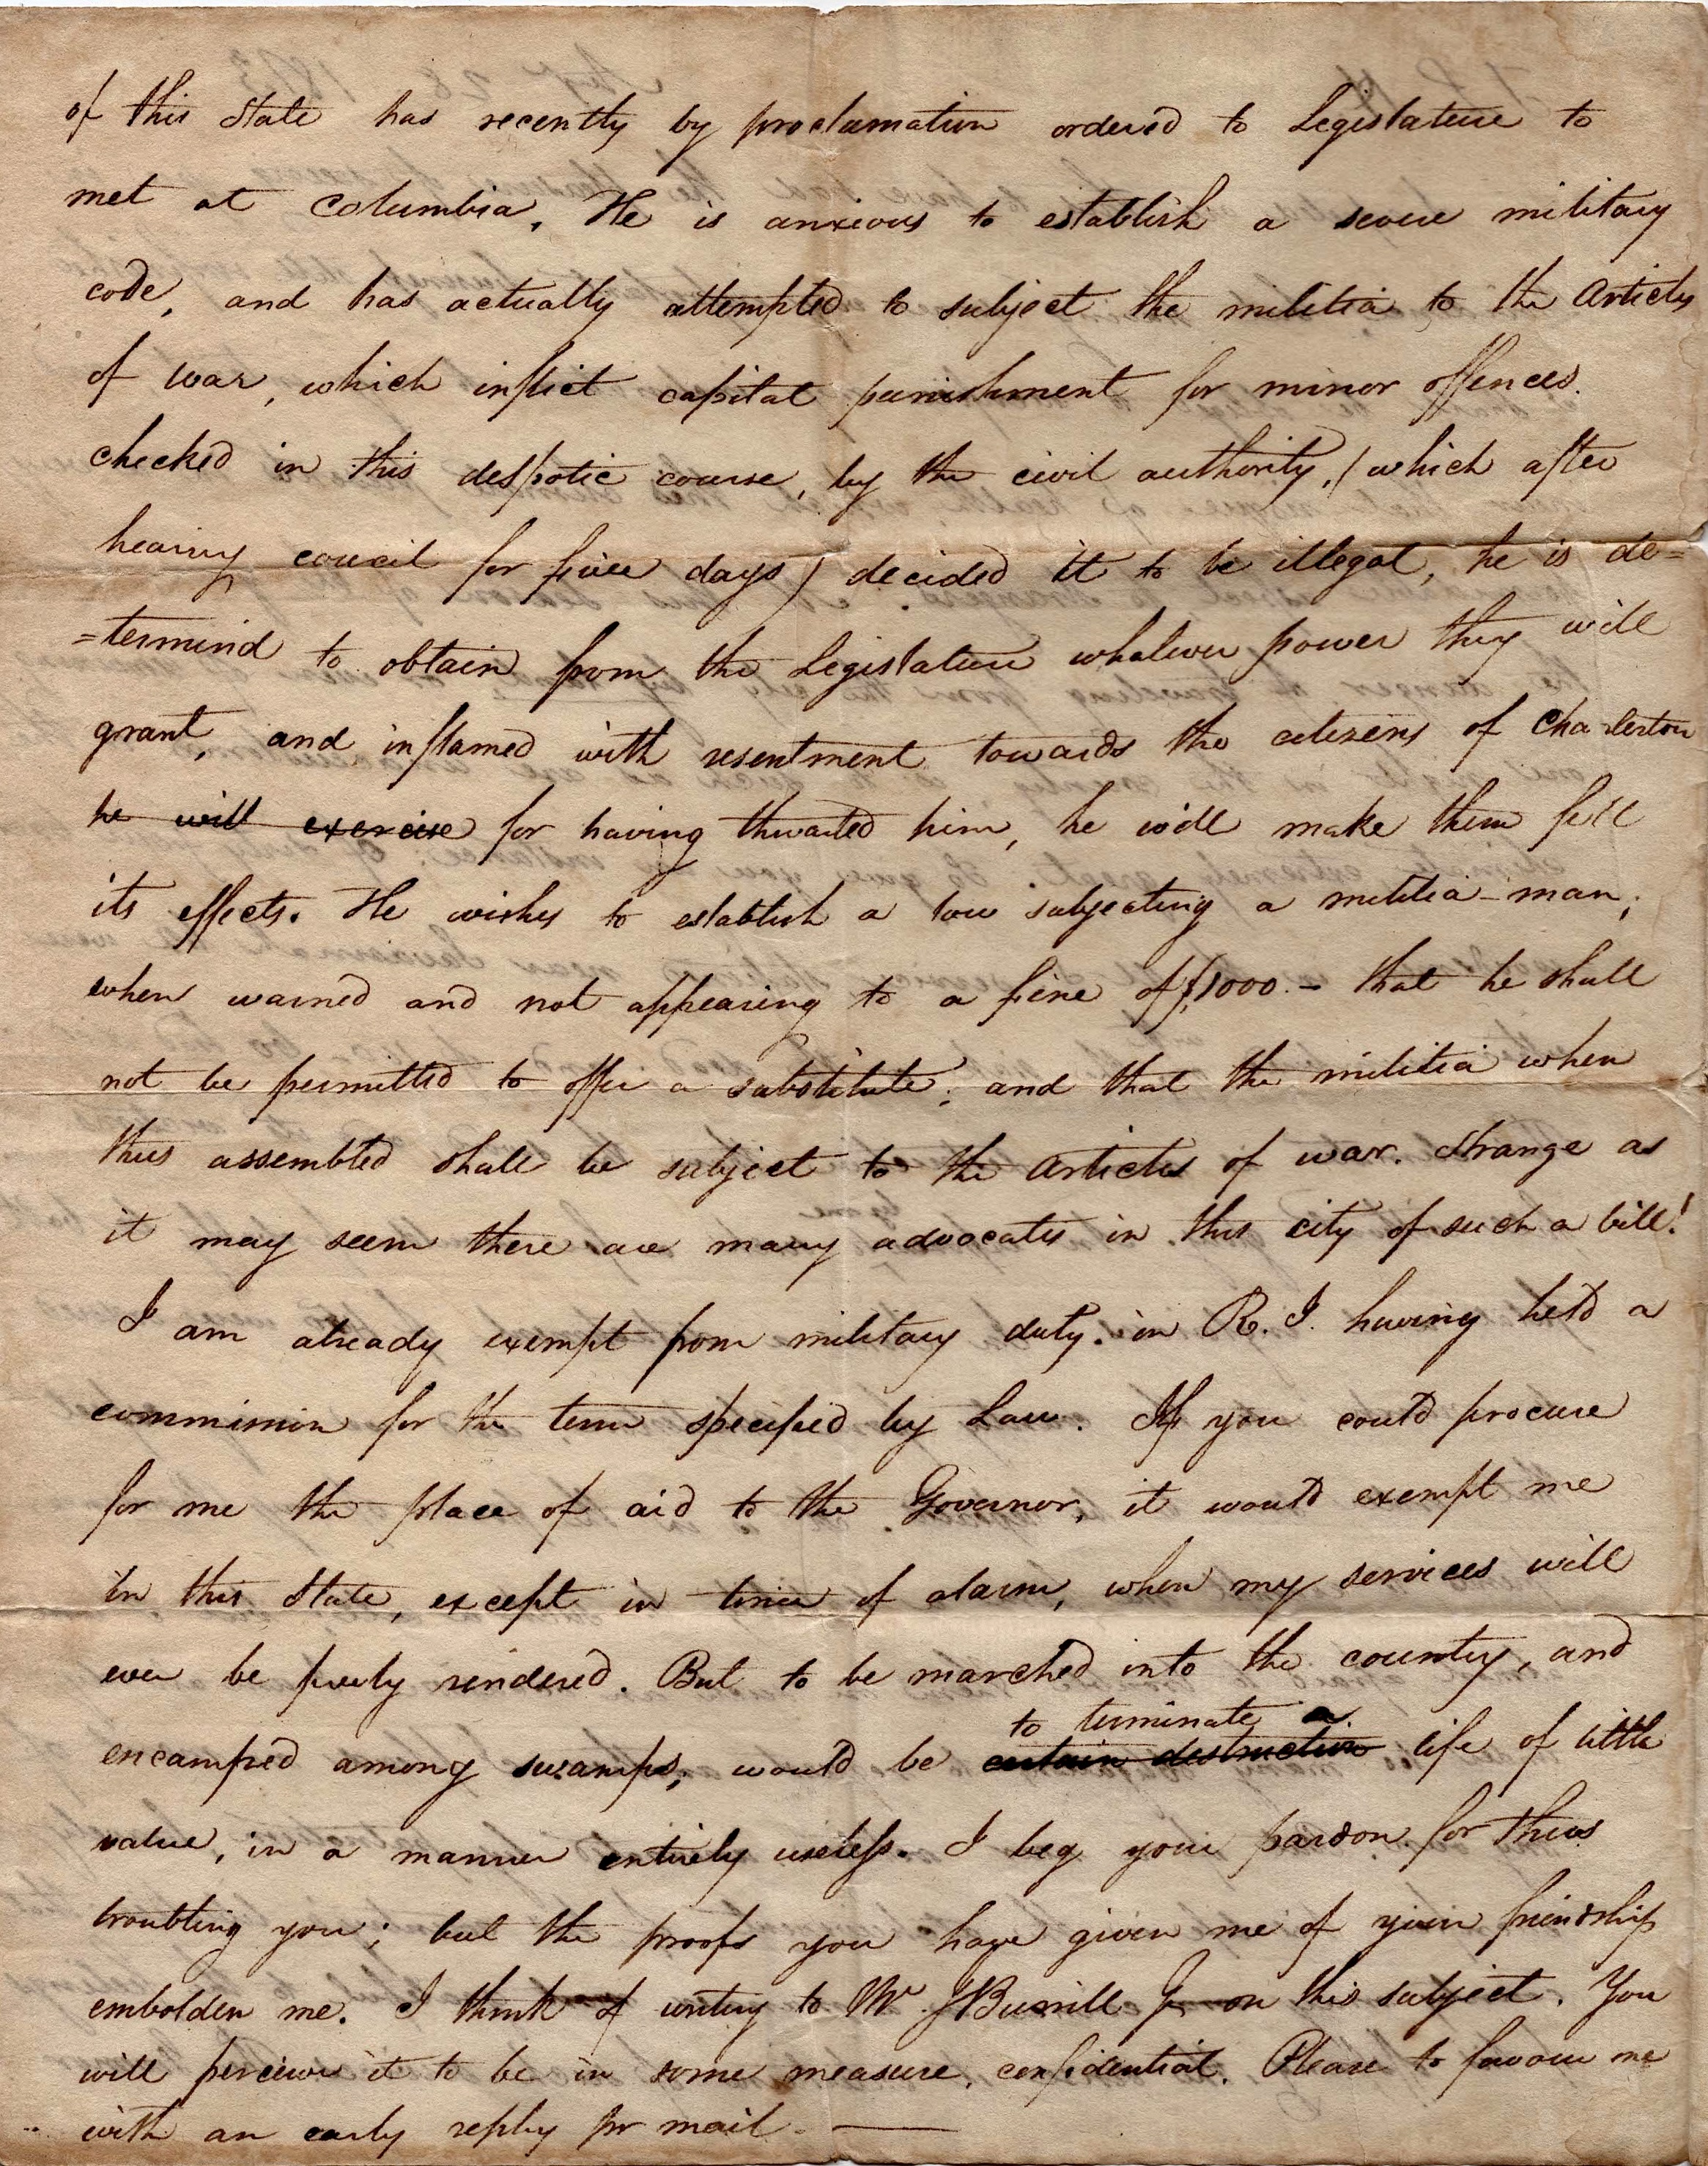 of this State has recently by proclamation ordered to Legislature to
met at Columbia. He is anxious to establish a severe military
code, and has actually attempted to subject the militia to the Articles
of war, which inflict capital punishment for minor offences.
checked in this despotic course, by the civil authority, (which after
hearing council for five days) decided it to be illegal, he is de=
=termind to obtain from the Legislature whatever power they will
grant, and inflamed with resentment towards the citizens of Charleston
he will exercise for having thwarted him, he will make them feel
its effects. He wishes to establish a law subjecting a militia-man,
when warned and not appearing to a fine of $1000 - that he shall
not be permitted to offer a substitute; and that the militia when
thus assembled shall be subject to the Articles of war. Strange as
it may seem there are many advocates in this city of such a bill!
I am already exempt from military duty in R. I. having held a
commission for the term specified by Law. If you could procure
for me the place of aid to the Governor, it would exempt me
in this State, except in times of alarm, when my services will
ever be freely rendered. But to be marched into the country, and
to terminate a
encamped among swamps, would be certain destruction life of little
value, in a manner entirely useless. I beg your pardon for thus
troubling you; but the proofs you have given me of your friendship
embolden me. I think of writing to Mr J Burrill Jr on this subject. You
will perceive it to be in some measure, confidential. Please to favour me
with an early reply pr mail. —